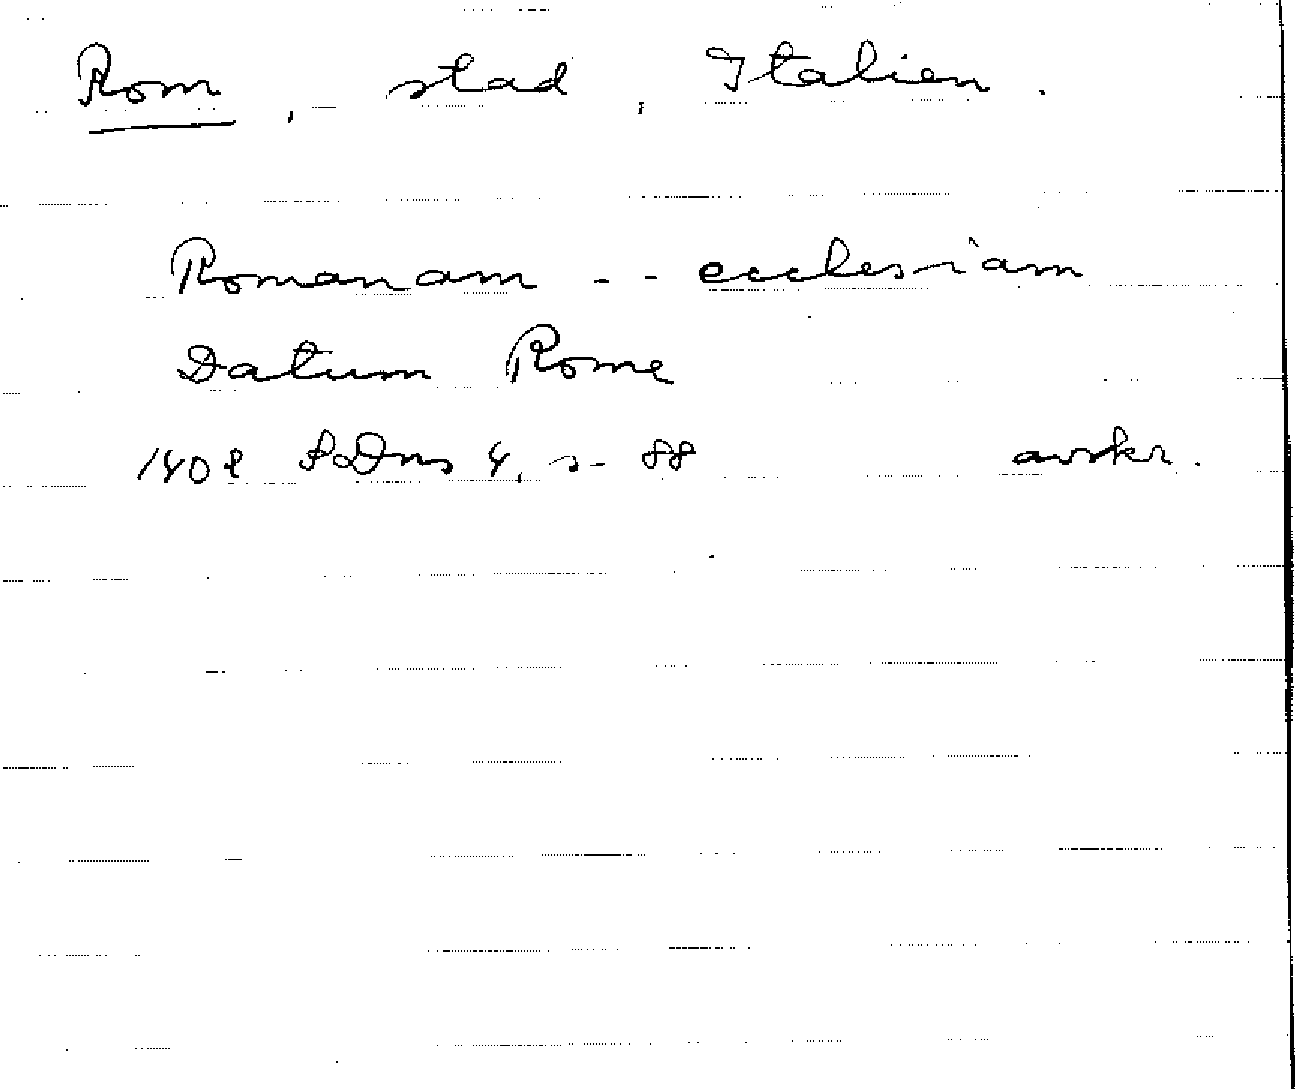 Rom, stad, Italien.
Romanam - - ecclesiam
Datum Rome
1402 SoDns 4, s- 88 avskr.